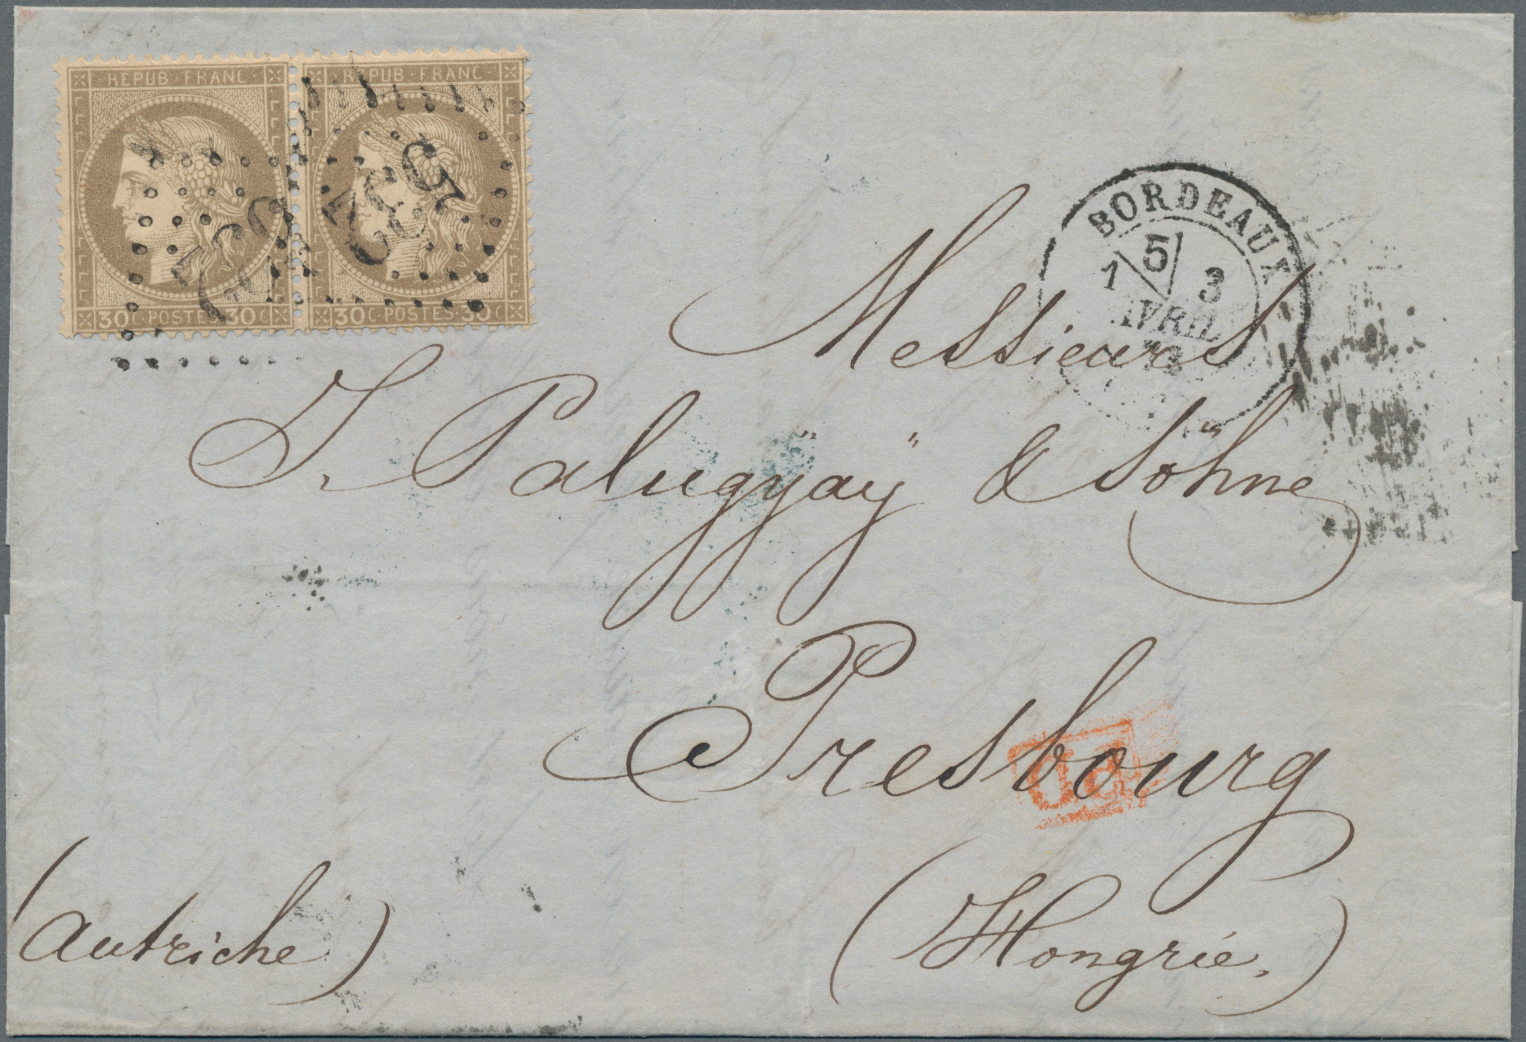 REPUB·FRANC REPUB·FRANC
532 532
30 C·POSTES·30 C 30 C·POSTES·30 C
BORDEAUX
5
1 3
AVRIL
73
Messieurs
J. Palugyaÿ & Söhne
Presbourg
PD
(Autriche)
(Hongrie.)